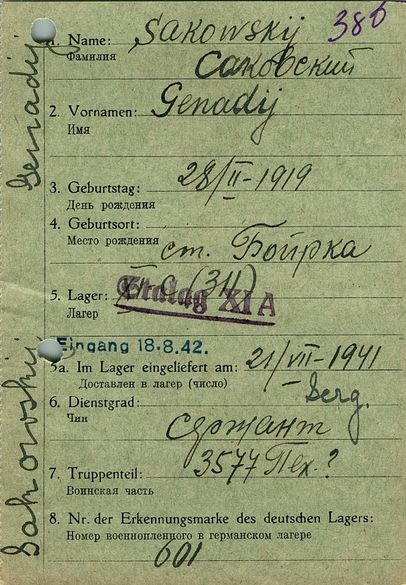 386
1. Name: Sakowskij
Фамилия Саковский
2. Vornamen: Genadij
Имя
3. Geburtstag: 28/II-1919
День рождения
4. Geburtsort:
Место рождения ст. Боярка
5. Lager: XI C (314) Stalag XI A
Лагер
Eingang 18.8.42.
5a. Im Lager eingeliefert am: 21/VII-1941
Доставлен в лагер (число)
6. Dienstgrad: Serg.
Чин сержант
7. Truppenteil: 3577 Пех.?
Воинская часть
8. Nr. der Erkennungsmarke des deutschen Lagers:
Номер военнопленного в германском лагере
601
Genadij
Sakowskij